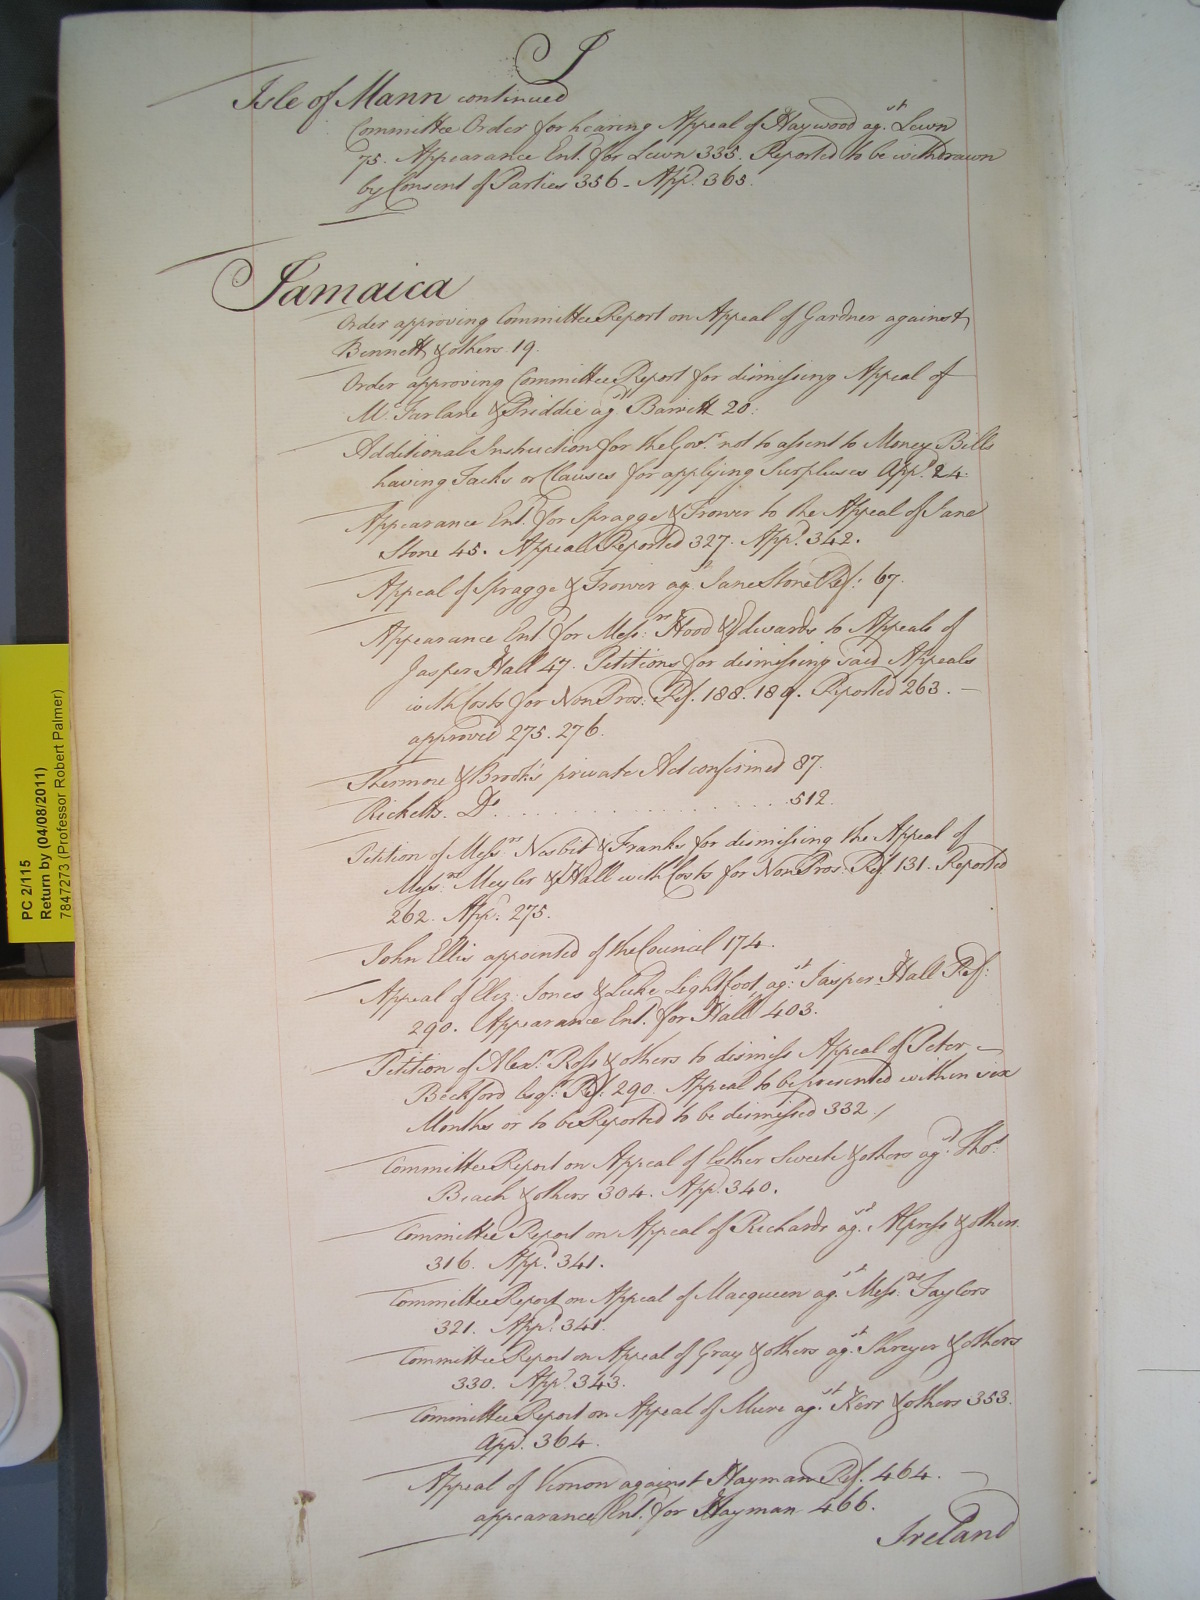 I
Isle of Mann continued
Committee Order for hearing Appeal of Haywood ag.st Lewn
75. Appearance Ent. for Lewn 335. Reported to be withdrawn
by Consent of Parties 356 - App.d 365.
Jamaica
Order approving Committee Report on Appeal of Gardner against
Bennett & others 19.
Order approving Committee Report for dismissing Appeal of
Mc.Farlane & Priddie ag.st Barrett 20:
Additional Instruction for the Gov.r not to assent to Money Bills
having Tacks or Clauses for applying Surplusses App.d 24.
Appearance Ent. for Spragge & Trower to the Appeal of Jane
Stone 45. Appeal Reported 327. App.d 342.
Appeal of Spragge & Trower ag.st Jane Stone Ref: 67.
Appearance Ent for Mess:rs Hood & Edwards to Appeals of
Jasper Hall 47. Petitions for dismissing said Appeals
with Costs for Non Pros: Ref. 188. 189. Reported 263. -
approved 275. 276.
& Brook's private Act confirmed 87.
Ricketts. Do. . . . . . . . . . . . . . . 512.
Petition of Mess:rs Nesbit & Franks for dismissing the Appeal of
Mess:rs Meyler & Hall with Costs for Non Pros: Ref. 131. Reported
262. App.d: 275.
John Ellis appointed of the Council 174.
Appeal of Eliz: Jones & Luke Lightfoot, ag:st Jasper Hall Ref:
290. Appearance Ent. for Hall 403.
Petition of Alex.r Ross & others to dismiss Appeal of Peter -
Beckford Esq.r: Ref. 290. Appeal to be presented within six
Months or to be Reported to be dismissed 332. /
Committee Report on Appeal of Esther Sweete & others ag.st Tho.s
Beach & others 304. App.d 340.
Committee Report on Appeal of Richards ag.st Alpress & others
316. App.d 341.
Committee Report on Appeal of Macqueen ag.st Mess.rs Taylors
321. App.d 341.
Committee Report on Appeal of Gray & others ag.st Shreyer & others
330. App.d 343.
Committee Report on Appeal of Mure ag.st Kerr & others 353.
App.d. 364.
Appeal of Vernon against Hayman Ref. 464. -
appearance Ent. for Hayman 466.
Ireland
PC 2/115
Return by (04/08/2011)
7847273 (Professor Robert Palmer)